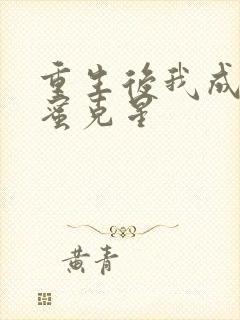 重生后我成
蜜克星
黄青